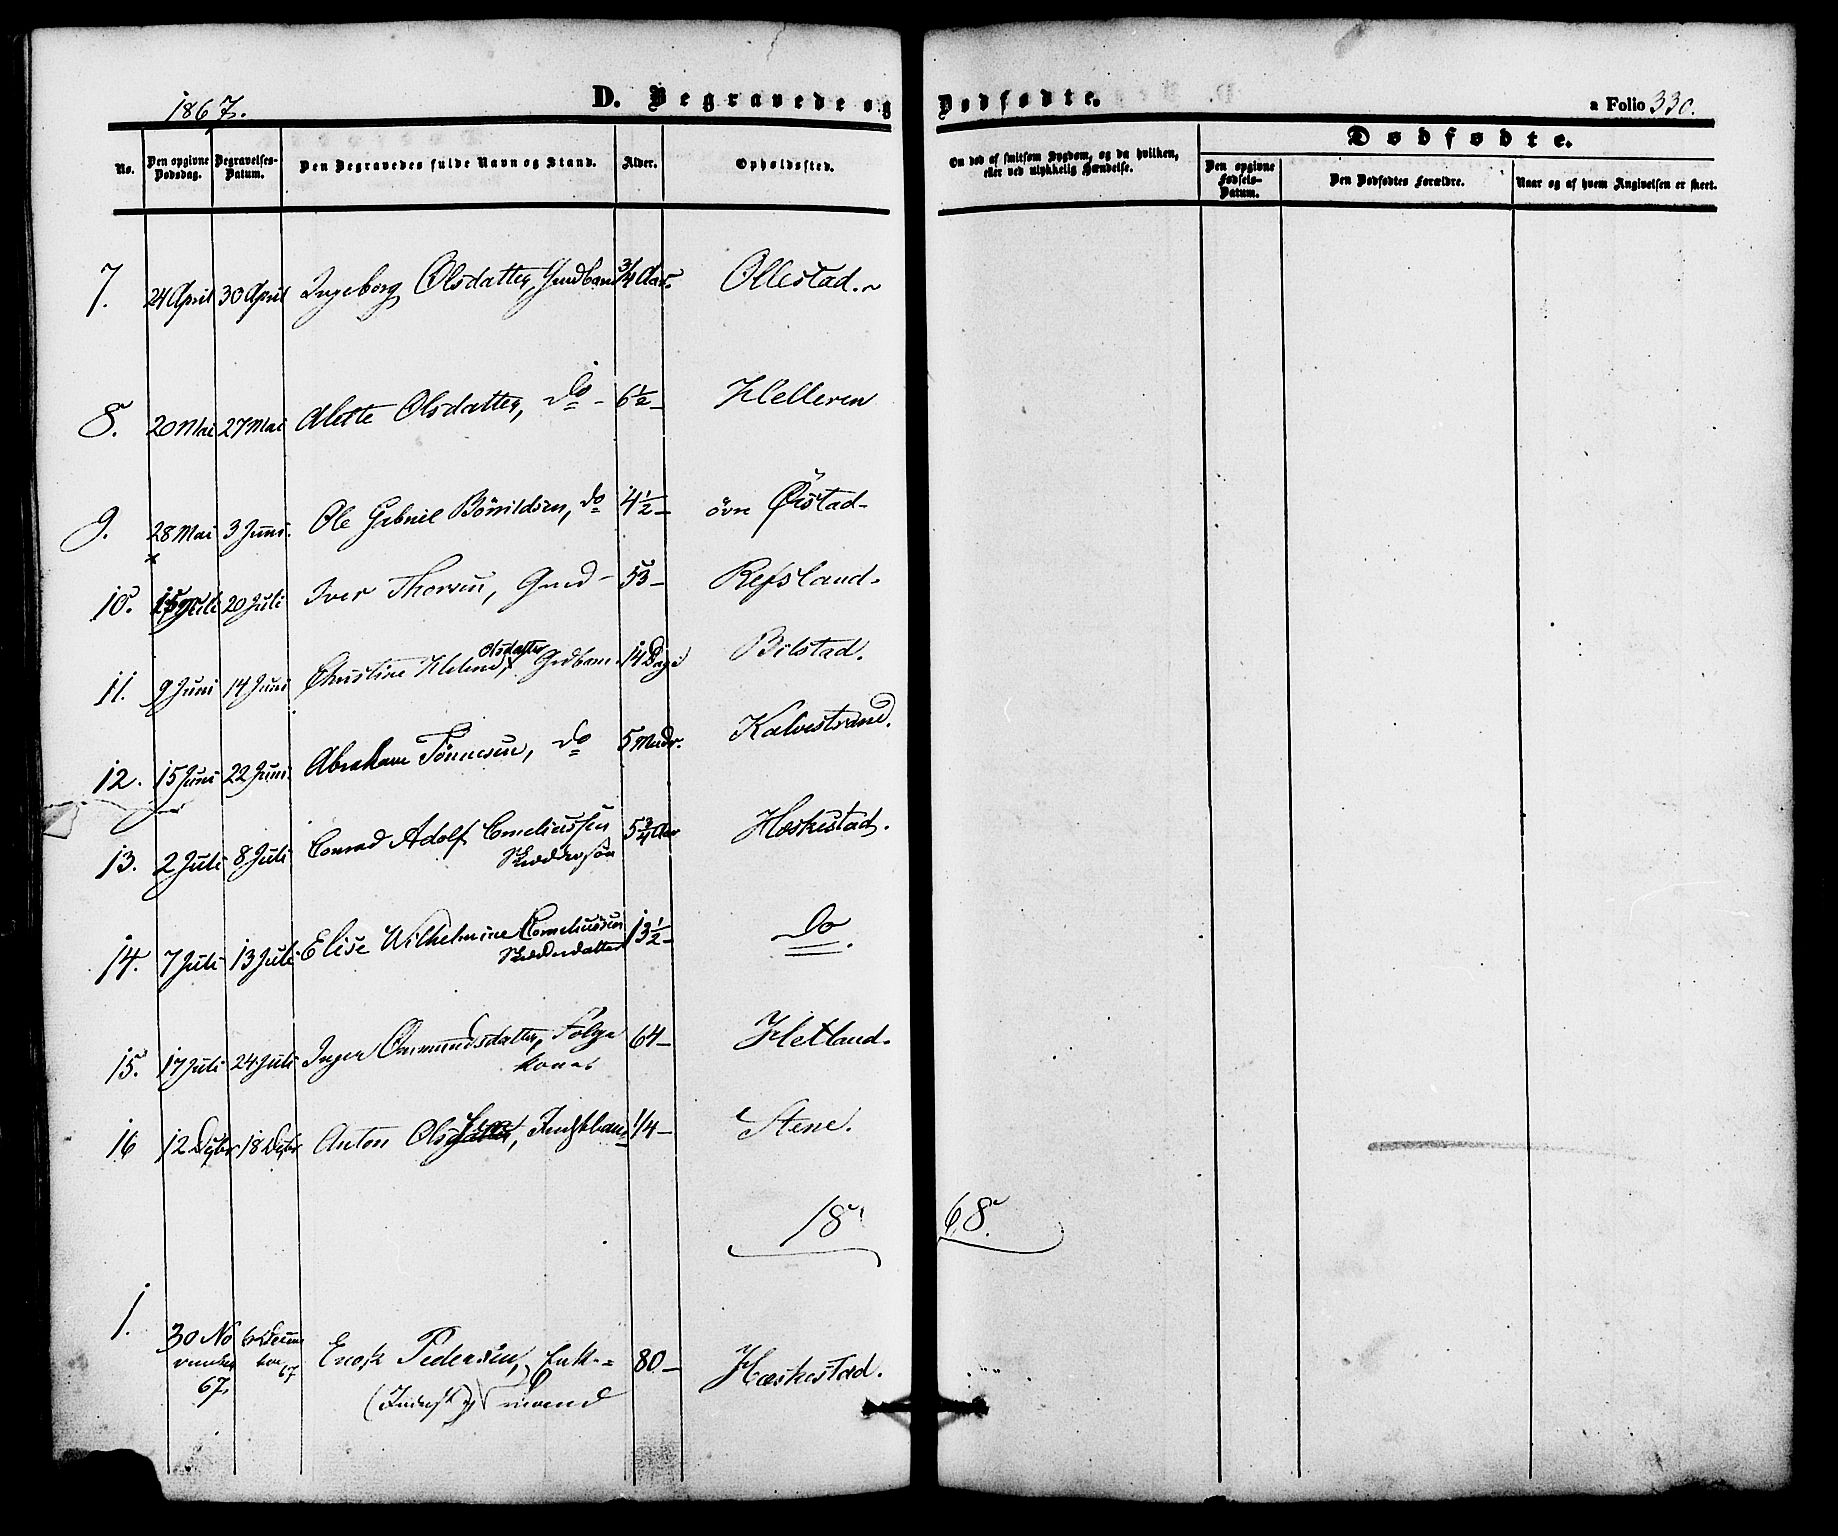 1867.
D. Begravede og Dødfødte.
a Folio 330.
No. Den opgivne Dødsdag. Begravelses-Datum. Den Begravedes fulde Navn og Stand. Alder. Opholdssted. Om død af smitsom Sygdom, og da hvilken, eller ved ulykkelig Hændelse. Dødfødte.
Den opgivne Fødsels-Datum. Den Dødfødtes Forældre. Naar og af hvem Angivelsen er skeet.
7. 24 April 30 April Ingeborg Olsdatter, 3/4 Aar. Ollestad.
8. 20 Mai 27 Mai Alette Olsdatter, do 6 1/2 - Helleren
9. 28 Mai 3 Juni. Ole Gabriel do 4 1/2 - övre Ørstad-
10. 15 20 Juli Iver Thorsen, Gmd - 53 - Refsland.
11. 9 Juni 14 Juni Christine Helene Olsdatter 14 Dage Bilstad.
12. 15 Juni 22 Juni. Abraham Tönnesen, do 5 Mndr. Kalvestrand.
13. 2 Juli 8 Juli Conrad Adolf Corneliussen
Skreddersön 5 3/4 Aar Heskestad.
14. 7 Juli 13 Juli Elise Wilhelmine Corneliussen
Skredderdatter 13 1/2 - do.
15. 17 Juli 24 Juli Inger Ommundsdatter, Følge
kone 64 - Hetland.
16 12 Dcbr 18 Dcbr Anton Ols 1/4 - Stene.
18 68.
1. 30 No
vember
67. 6 Decem
ber 67 Enok Pedersen, Enke-
mand 80 - Heskestad.